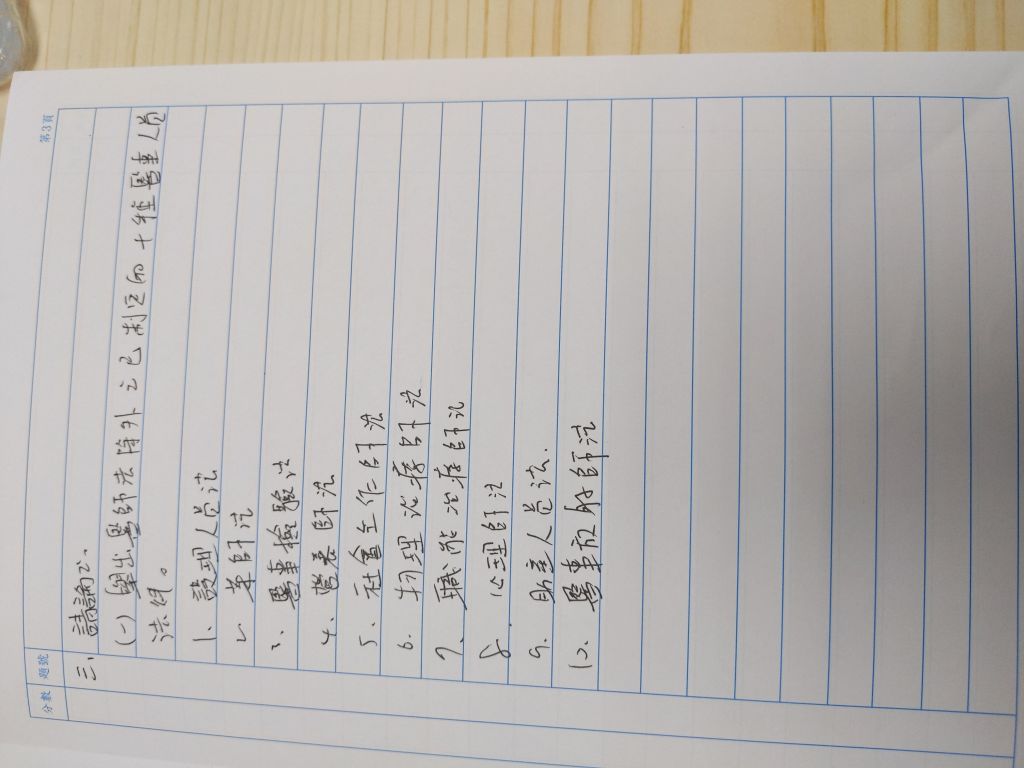 第3頁
分數 題號
三、請論述:
(一)舉出醫師法除外之已制定的十種醫事人員
法律。
1. 護理人員法
2. 藥師法
3. 醫事檢驗法
4. 營養師法
5. 社會工作師法
6. 物理治療師法
7. 職能治療師法
8. 心理師法
9. 助產人員法.
10. 醫事放射師法